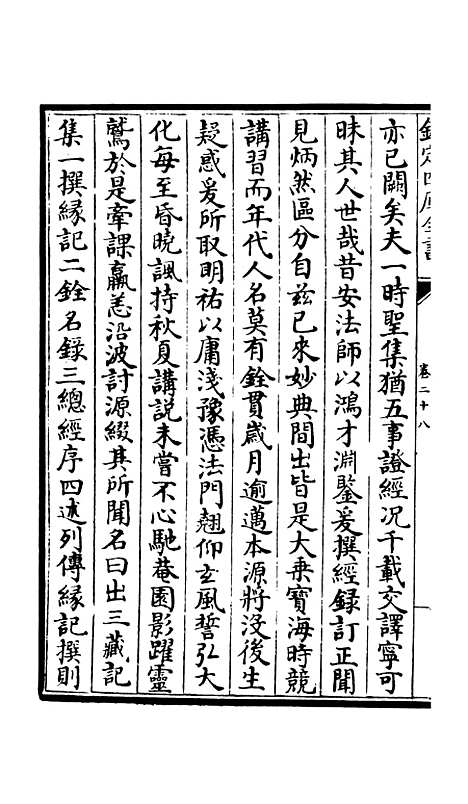 欽定四庫全書
卷二十八
亦已闕矣夫一時聖集猶五事證經况千載交譯寧可
昧其人世哉昔安法師以鴻才淵鑒爰撰經録訂正聞
見炳然區分自兹已來妙典間出皆是大乗寳海時競
講習而年代人名莫有銓貫歲月逾邁本源將没後生
疑惑爰所取明祐以庸淺豫憑法門翹仰玄風誓弘大
化每至昏曉諷持秋夏講説未嘗不心馳菴園影躍靈
鷲於是牽課羸恙沿波討源綴其所聞名曰出三藏記
集一撰縁記二銓名録三總經序四述列傳縁記撰則